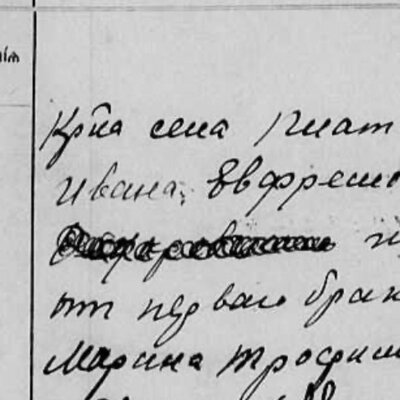 Крⷭ҇на села Гнат
Ивана, Евфремо
от перваго брак
Марина Трофим